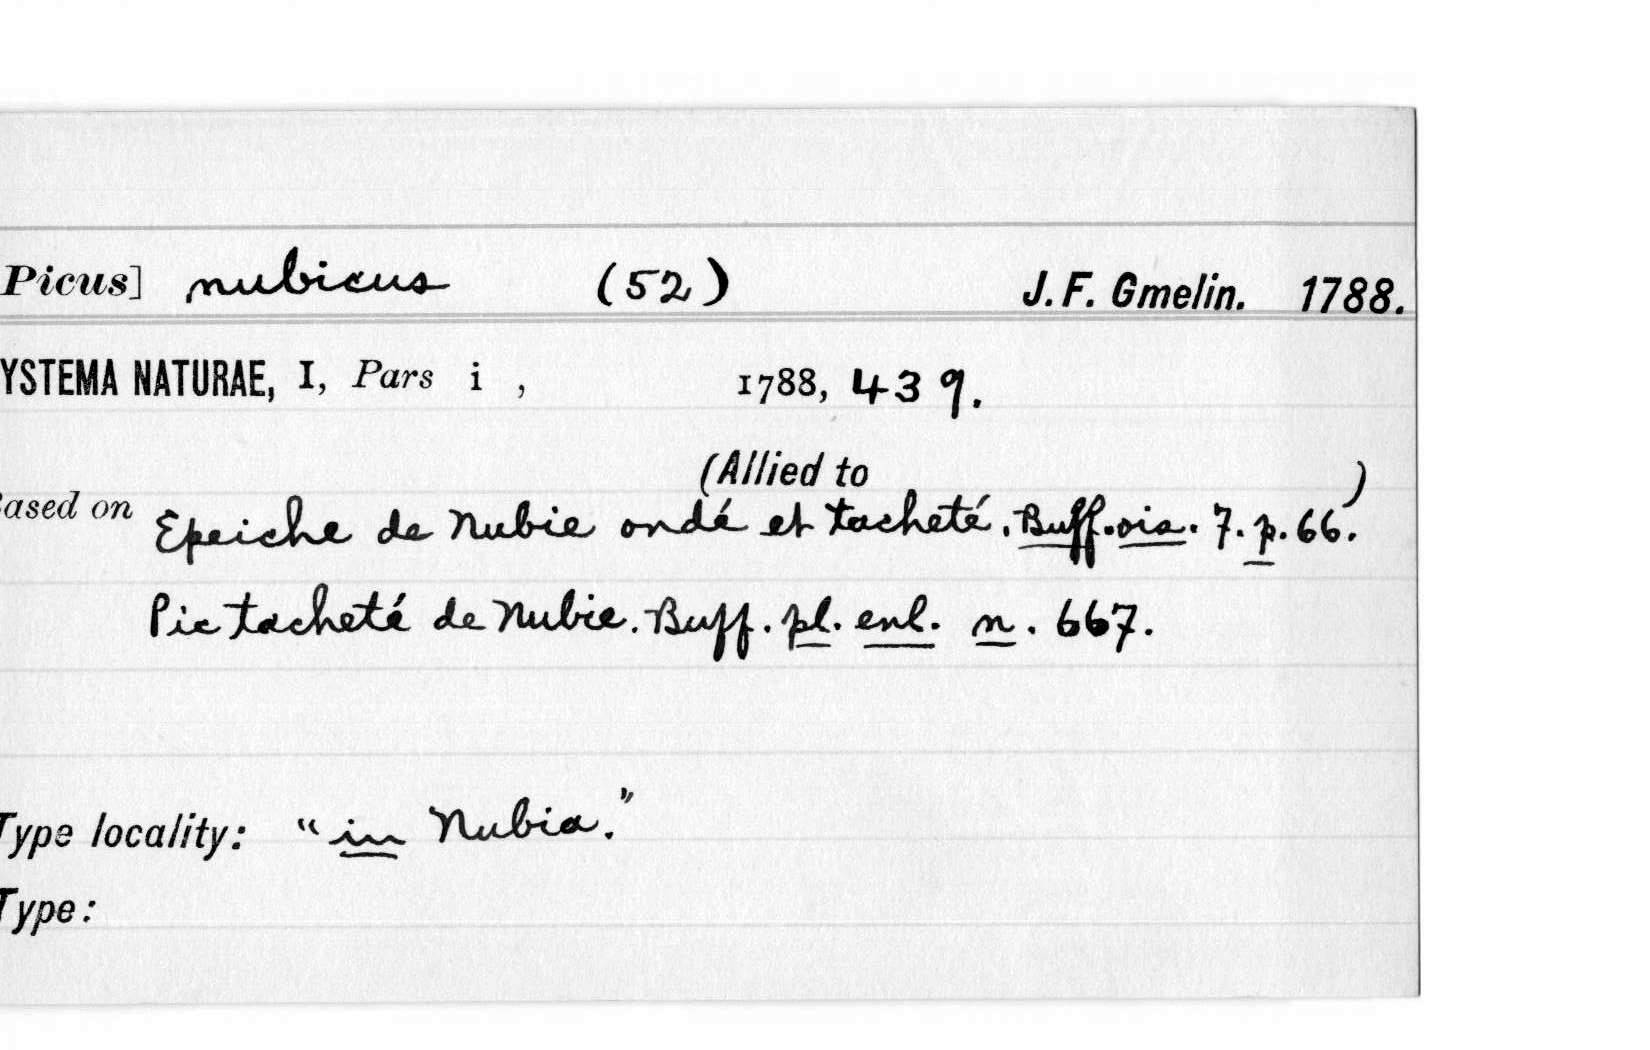 Picus] nubicus (52) J. F. Gmelin. 1788.
YSTEMA NATURAE, I, Pars i , 1788, 439.
(Allied to )
ased on Epeiche de Nubie ondé et tacheté. Buff. ois. 7. p. 66.
Pic tacheté de Nubie. Buff. pl. enl. n. 667.
Type locality: "in Nubia."
Type: